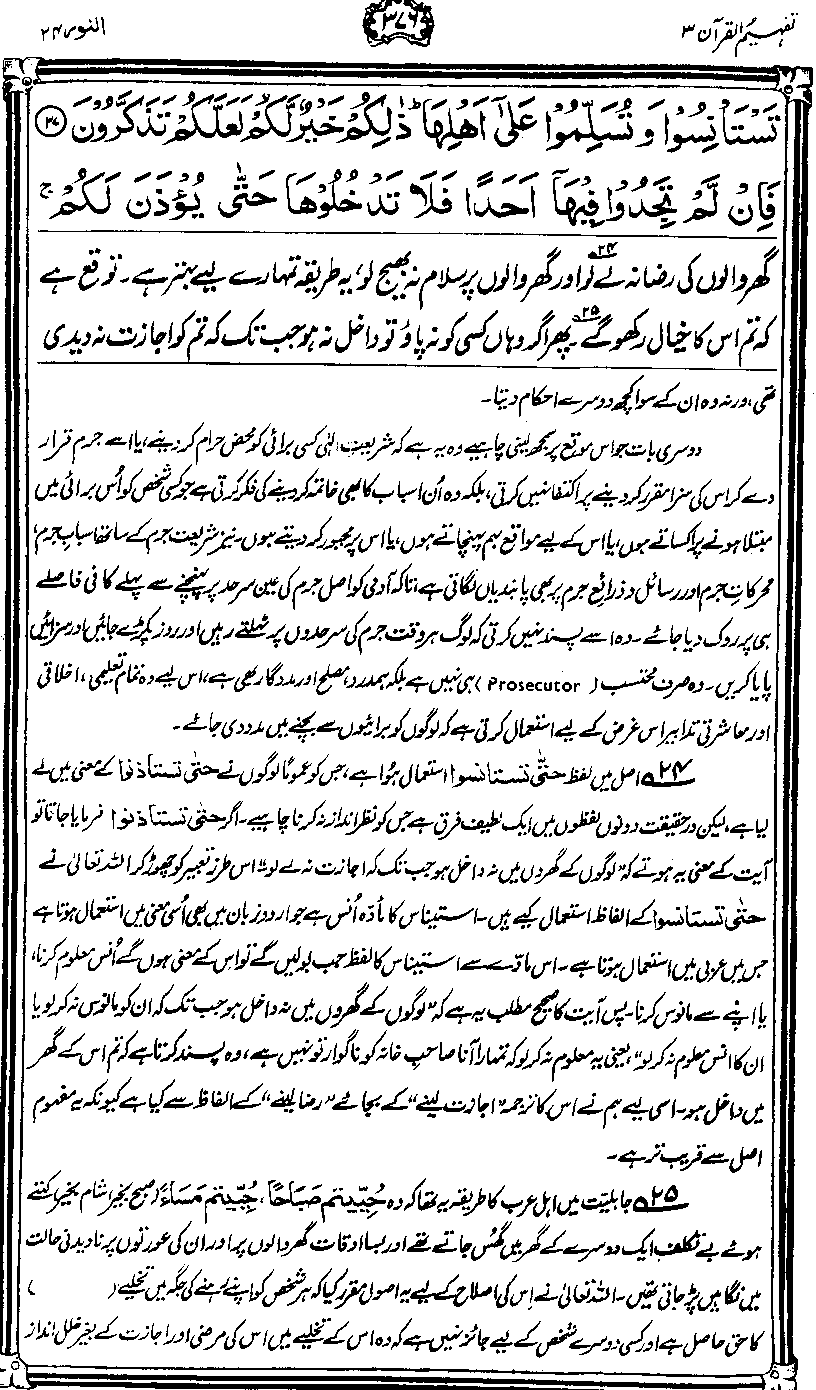 تفہیم القرآن ۳
۳۷۶
النور ۲۴
تَسْتَاْنِسُوْا وَ تُسَلِّمُوْا عَلٰۤى اَهْلِهَاؕ ذٰلِكُمْ خَیْرٌ لَّكُمْ لَعَلَّكُمْ تَذَكَّرُوْنَ ۲۷
فَاِنْ لَّمْ تَجِدُوْا فِیْهَاۤ اَحَدًا فَلَا تَدْخُلُوْهَا حَتّٰى یُؤْذَنَ لَكُمْ ۚ
گھر والوں کی رضا نہ لے لو اور گھر والوں پر سلام نہ بھیج لو، یہ طریقہ تمہارے لیے بہتر ہے۔ توقع ہے
کہ تم اس کا خیال رکھو گے۔ پھر اگر وہاں کسی کو نہ پاؤ تو داخل نہ ہو جب تک کہ تم کو اجازت نہ دیدی
تھی، ورنہ وہ ان کے سوا کچھ دوسرے احکام دیتا۔
دوسری بات جو اس موقع پر سمجھ لینی چاہیے وہ یہ ہے کہ شریعت الٰہی کسی برائی کو محض حرام کر دینے، یا اسے جرم قرار
دے کر اس کی سزا مقرر کر دینے پر اکتفا نہیں کرتی، بلکہ وہ اُن اسباب کا بھی خاتمہ کر دینے کی فکر کرتی ہے جو کسی شخص کو اُس برائی میں
مبتلا ہونے پر اکساتے ہوں، یا اس کے لیے مواقع بہم پہنچاتے ہوں، یا اس پر مجبور کر دیتے ہوں۔ نیز شریعت جرم کے ساتھ اسبابِ جرم،
محرکاتِ جرم اور رسائل و ذرائع جرم پر بھی پابندیاں لگاتی ہے، تاکہ آدمی کو اصل جرم کی عین سرحد پر پہنچنے سے پہلے کافی فاصلے
ہی پر روک دیا جائے۔ وہ اسے پسند نہیں کرتی کہ لوگ ہر وقت جرم کی سرحدوں پر ٹہلتے رہیں اور روز پکڑے جائیں اور سزائیں
پایا کریں۔ وہ صرف محتسب (Prosecutor) ہی نہیں ہے بلکہ ہمدرد، مصلح اور مددگار بھی ہے، اس لیے وہ تمام تعلیمی، اخلاقی
اور معاشرتی تدابیر اس غرض کے لیے استعمال کرتی ہے کہ لوگوں کو برائیوں سے بچنے میں مدد دی جائے۔
۲۴؎ اصل میں لفظ حَتّٰی تستانسوا استعمال ہُوا ہے، جس کو عموماً لوگوں نے حتیٰ تستاذنوا کے معنی میں لے
لیا ہے، لیکن درحقیقت دونوں لفظوں میں ایک لطیف فرق ہے جس کو نظر انداز نہ کرنا چاہیے۔ اگر حتیٰ تستاذنوا فرمایا جاتا تو
آیت کے معنی یہ ہوتے کہ "لوگوں کے گھروں میں نہ داخل ہو جب تک کہ اجازت نہ لے لو" اس طرز تعبیر کو چھوڑ کر اللہ تعالیٰ نے
حتیٰ تستانسوا کے الفاظ استعمال کیے ہیں۔ استیناس کا مادّہ اُنس ہے جو اردو زبان میں بھی اُسی معنی میں استعمال ہوتا ہے
جس میں عربی میں استعمال ہوتا ہے۔ اس مادّے سے استیناس کا لفظ جب بولیں گے تو اس کے معنی ہوں گے اُنس معلوم کرنا،
یا اپنے سے مانوس کرنا۔ پس آیت کا صحیح مطلب یہ ہے کہ "لوگوں کے گھروں میں نہ داخل ہو جب تک کہ ان کو مانوس نہ کر لو یا
ان کا انس معلوم نہ کر لو"، یعنی یہ معلوم نہ کر لو کہ تمہارا آنا صاحبِ خانہ کو ناگوار تو نہیں ہے، وہ پسند کرتا ہے کہ تم اس کے گھر
میں داخل ہو۔ اسی لیے ہم نے اس کا ترجمہ "اجازت لینے" کے بجائے "رضا لینے" کے الفاظ سے کیا ہے کیونکہ یہ مفہوم
اصل سے قریب تر ہے۔
۲۵؎ جاہلیت میں اہل عرب کا طریقہ یہ تھا کہ وہ حُیِّیتم صَبَاحًا، حُیِّیتم مَسَاءً (صبح بخیر، شام بخیر) کہتے
ہوئے بے تکلف ایک دوسرے کے گھر میں گھس جاتے تھے اور بسا اوقات گھر والوں پر اور ان کی عورتوں پر نادیدنی حالت
میں نگاہیں پڑ جاتی تھیں۔ اللہ تعالیٰ نے اس کی اصلاح کے لیے یہ اصول مقرر کیا کہ ہر شخص کو اپنے رہنے کی جگہ میں تخلیے ( )
کا حق حاصل ہے اور کسی دوسرے شخص کے لیے جائز نہیں ہے کہ وہ اس کے تخلیے میں اس کی مرضی اور اجازت کے بغیر خلل انداز